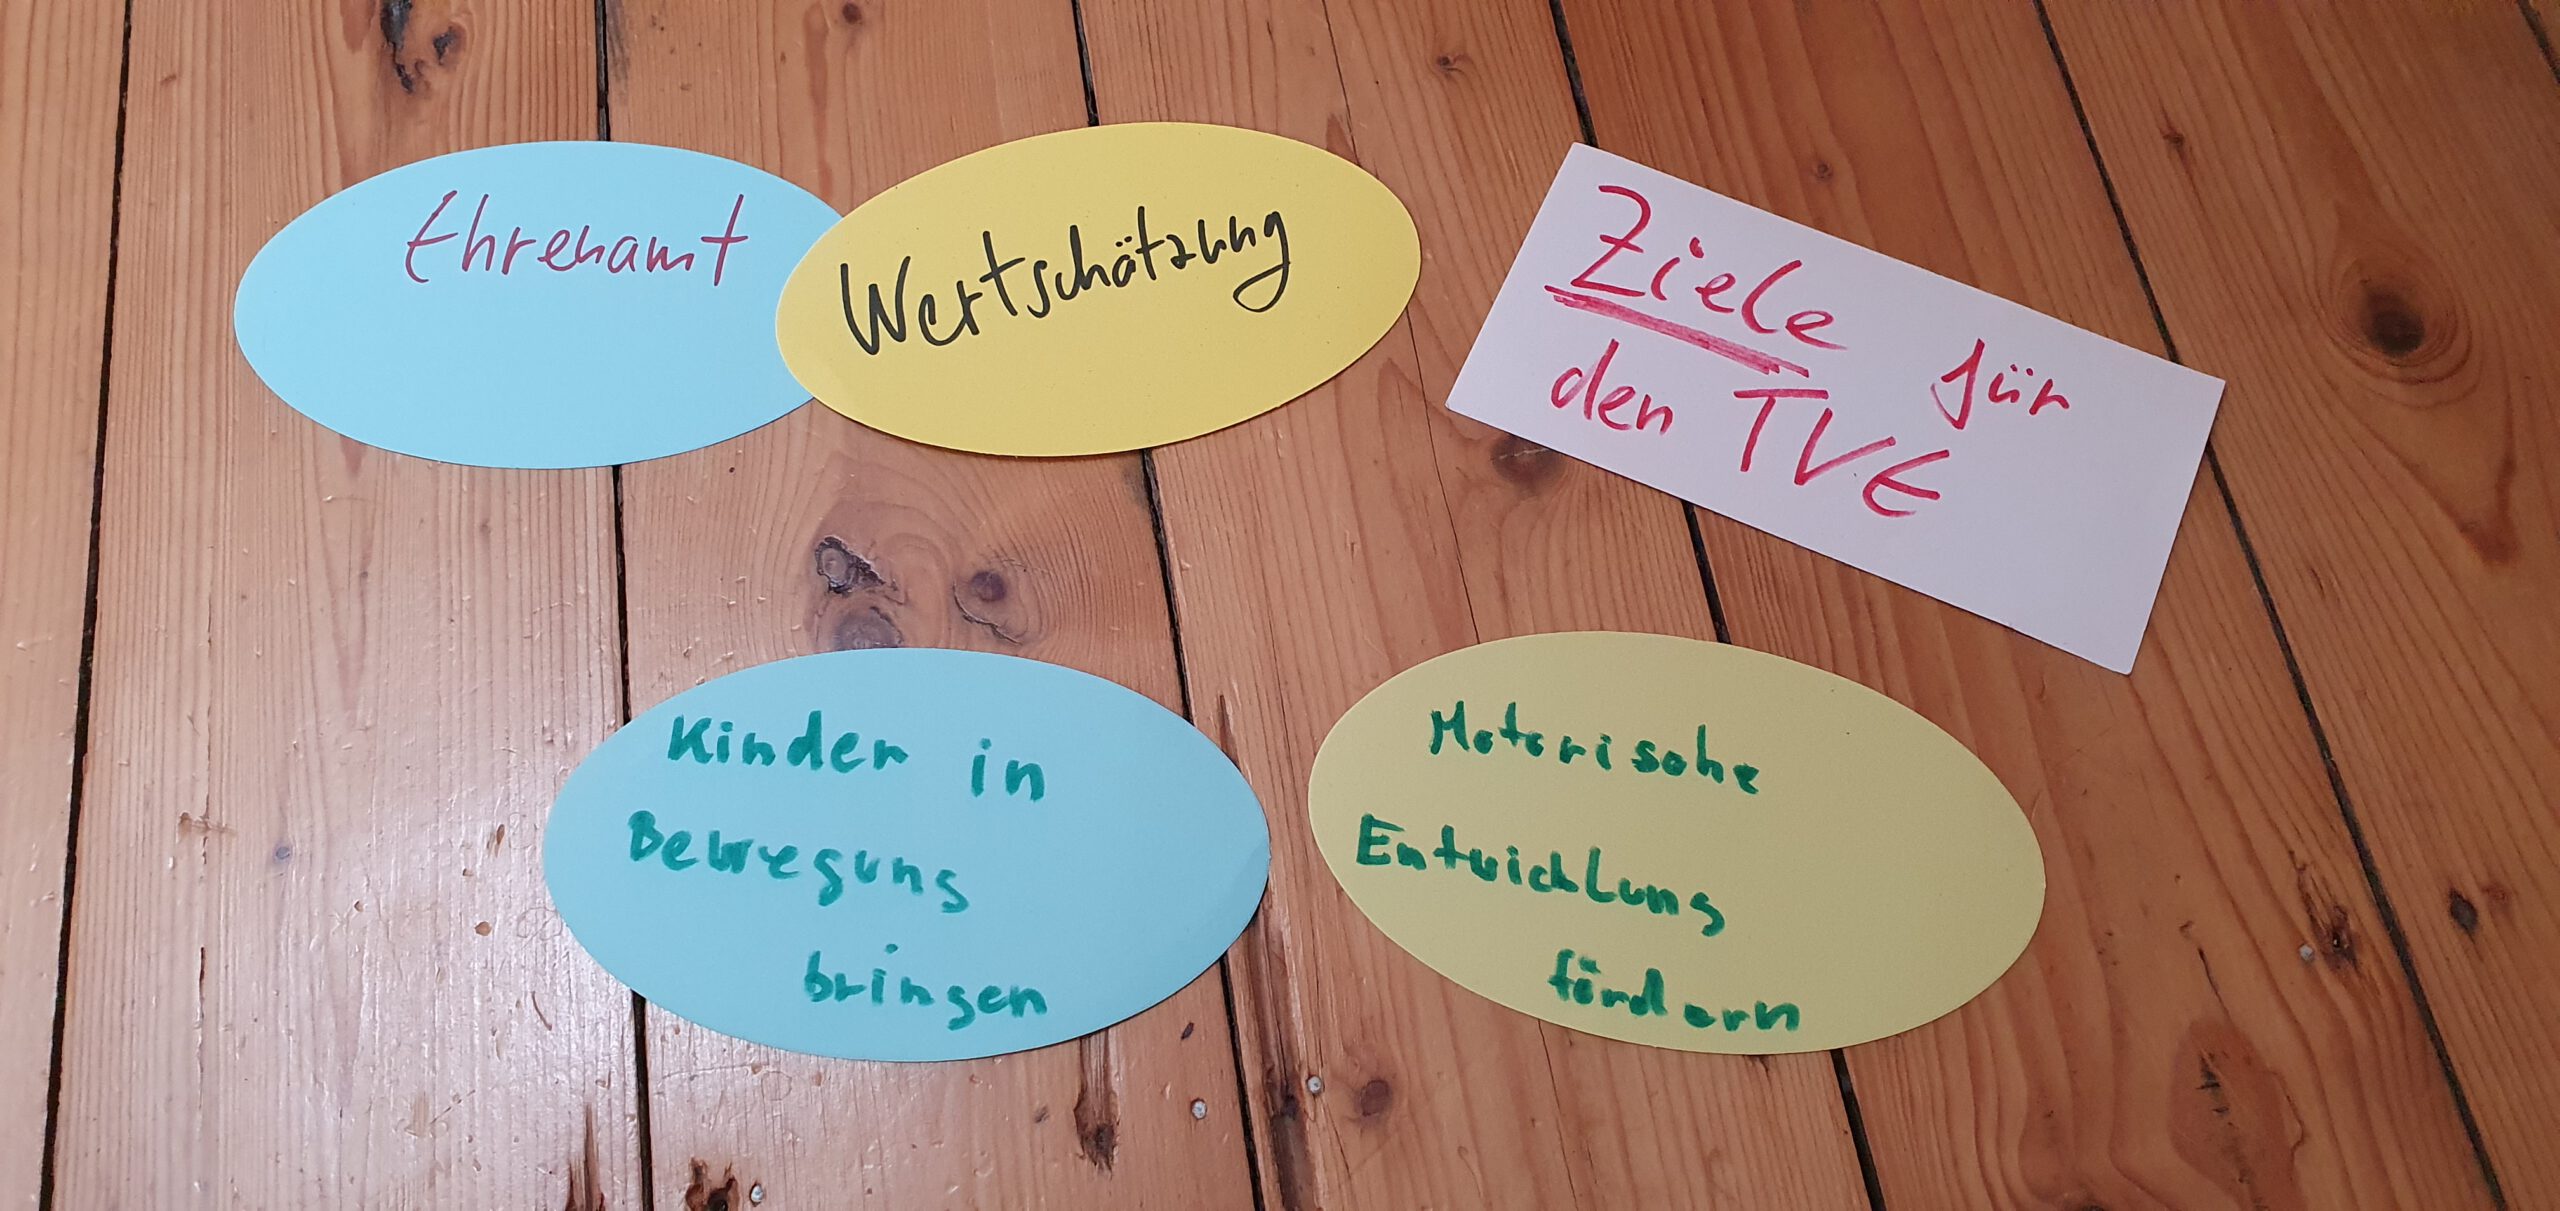 Ehrenamt
Wertschätzung
Ziele für
den TVE
Kinder in
Bewegung
bringen
Motorische
Entwicklung
fördern